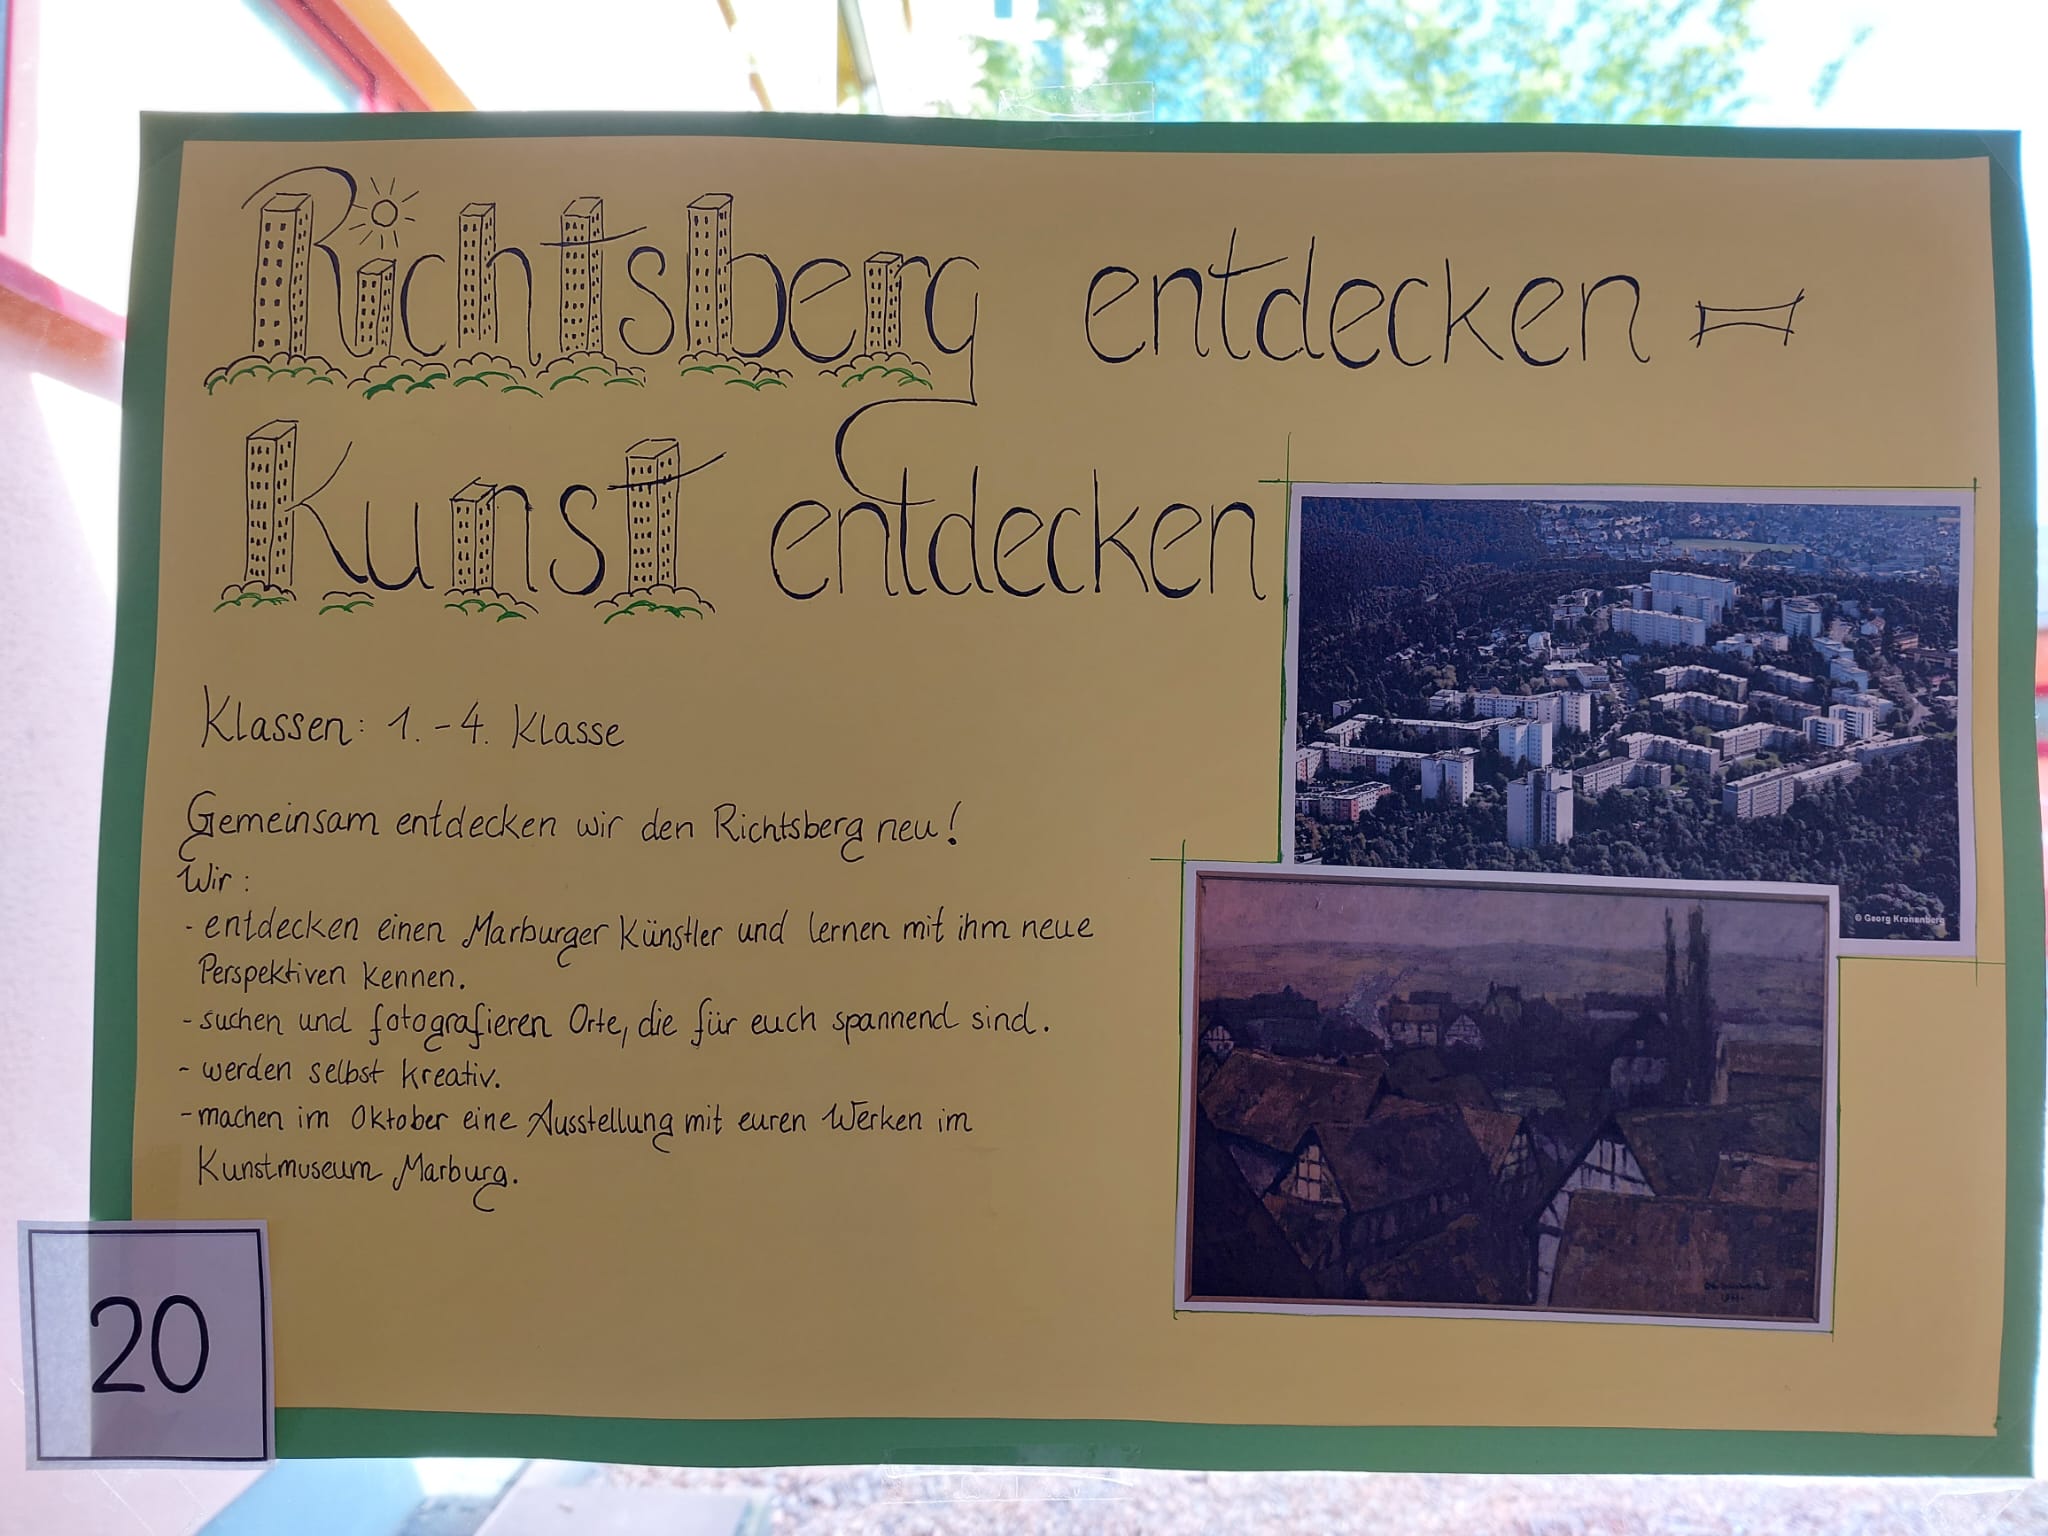 Richtsberg entdecken =
Kunst entdecken
Klassen: 1. - 4. Klasse
Gemeinsam entdecken wir den Richtsberg neu!
Wir:
- entdecken einen Marburger Künstler und lernen mit ihm neue
Perspektiven kennen.
- suchen und fotografieren Orte, die für euch spannend sind.
- werden selbst kreativ.
- machen im Oktober eine Ausstellung mit euren Werken im
Kunstmuseum Marburg.
© Georg Kronenberg
20